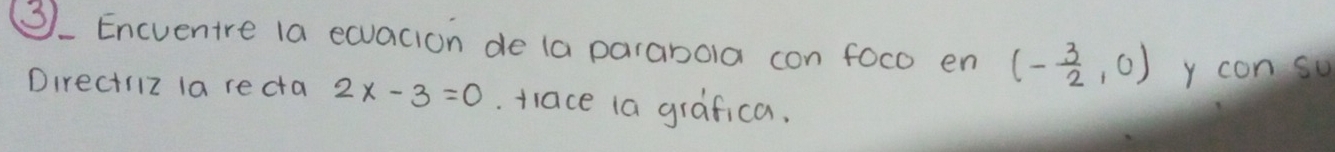 3.- Encuentre la ecuación de la parabola con foco en (-3/2, 0) y con su
Directriz la recta 2x - 3 = 0. trace la gráfica.